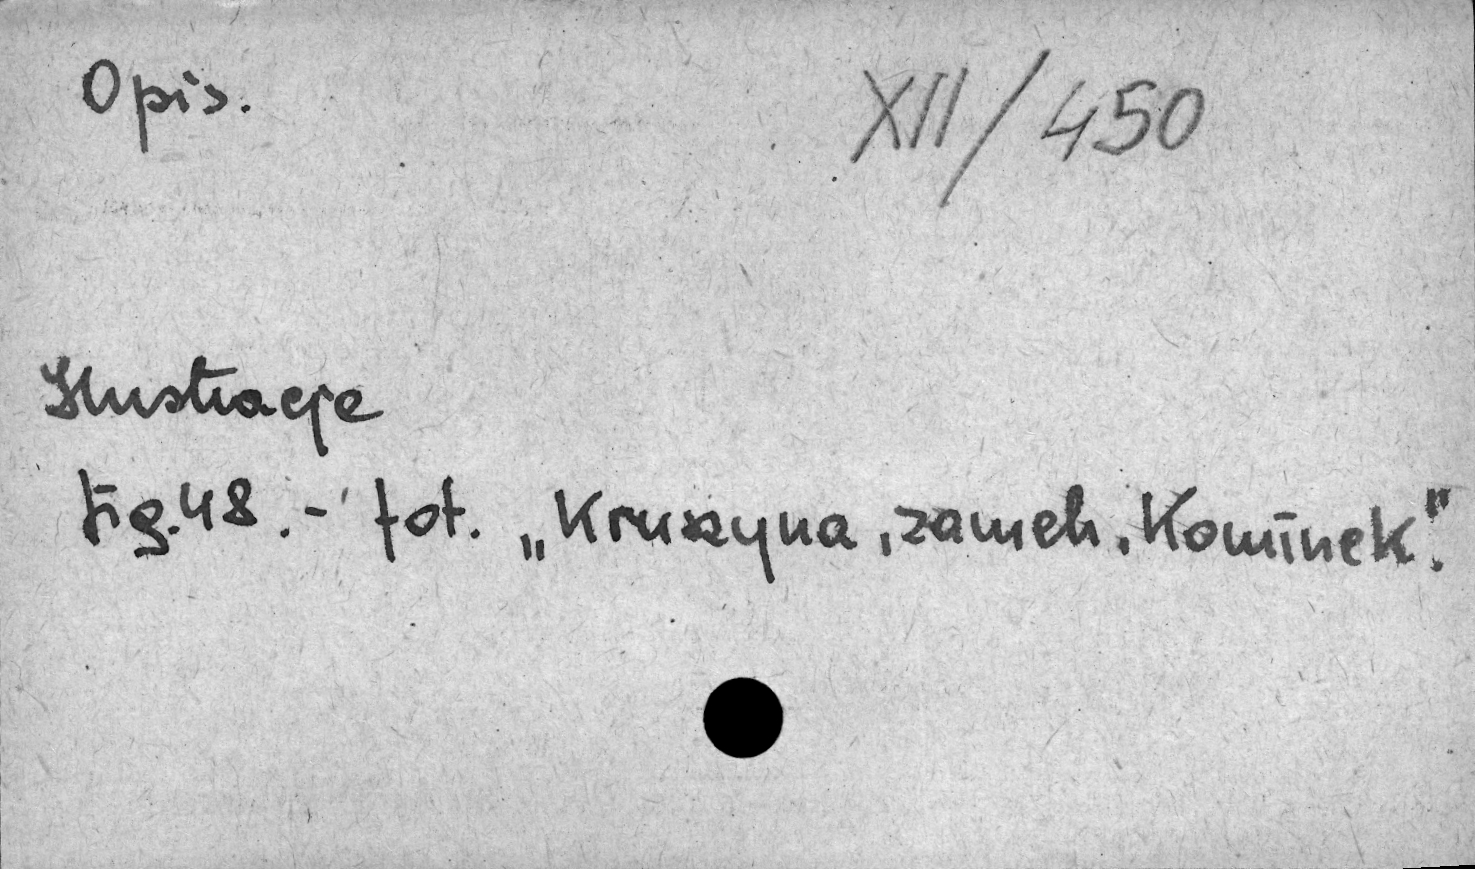 Opis.
XII/450
Ilustracje
Fig.48. - fot. „Kruszyna, zamek. Kominek".